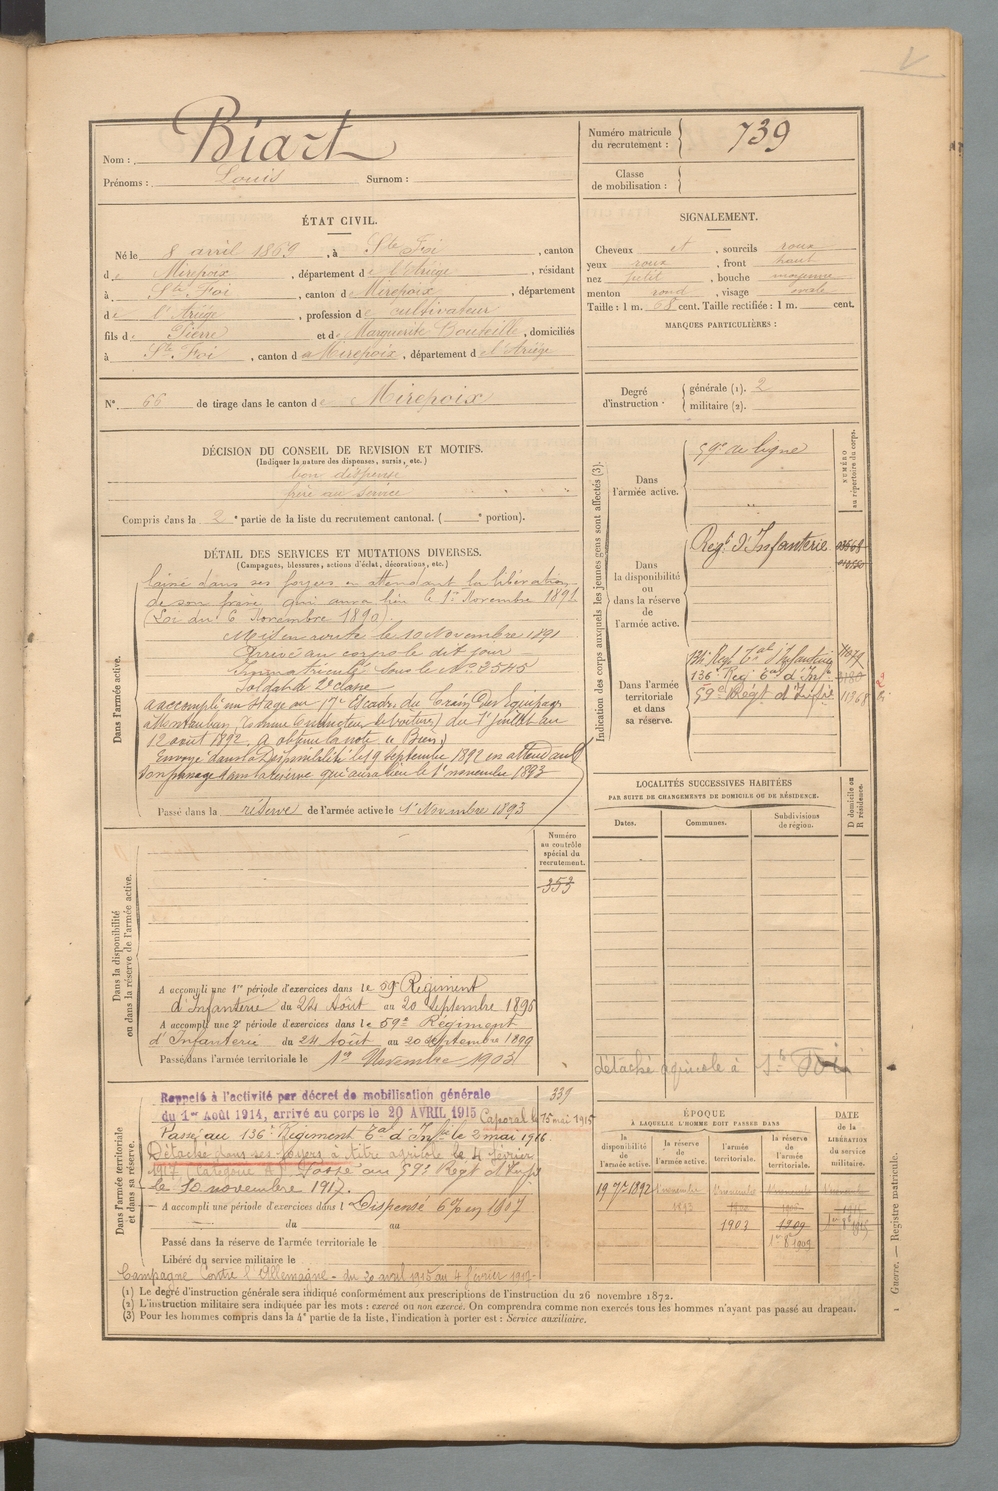 Nom : Biart
Prénoms : Louis Surnom :
Numéro matricule du recrutement : 739
Classe de mobilisation :
ÉTAT CIVIL.
Né le 8 avril 1869, à Ste Foi, canton
de Mirepoix, département de l'Ariège, résidant
à Ste Foi, canton de Mirepoix, département
de l'Ariège, profession de cultivateur
fils de Pierre et de Marguerite Bouteille, domiciliés
à Ste Foi, canton de Mirepoix, département de l'Ariège
N° 66 de tirage dans le canton de Mirepoix
SIGNALEMENT.
Cheveux et, sourcils roux
yeux roux, front haut
nez petit, bouche moyenne
menton rond, visage ovale
Taille : 1 m. 68 cent. Taille rectifiée : 1 m. cent.
MARQUES PARTICULIÈRES :
Degré d'instruction. générale (1). 2
militaire (2).
DÉCISION DU CONSEIL DE REVISION ET MOTIFS.
(Indiquer la nature des dispenses, sursis, etc.)
bon dispensé
frère au service
Compris dans la 2e partie de la liste du recrutement cantonal. ( e portion).
DÉTAIL DES SERVICES ET MUTATIONS DIVERSES.
(Campagnes, blessures, actions d'éclat, décorations, etc.)
Dans l'armée active.
laissé dans ses foyers en attendant la libération
de son frère qui aura lieu le 1er Novembre 1891
(Loi du 6 Novembre 1890).
Mis en route le 10 Novembre 1891
Arrivé au corps le dit jour
Immatriculé sous le N° 3545
Soldat de 2e classe
a accompli un stage au 17e Escadr. du Train Des Equipages
à Montauban (comme Conducteur de Voitures) du 1er juillet au
12 août 1892. A obtenu la note "Bien"
Envoyé dans la Disponibilité le 19 septembre 1892 en attendant
son passage dans la réserve qui aura lieu le 1er novembre 1893
Passé dans la réserve de l'armée active le 1er Novembre 1893
Indication des corps auxquels les jeunes gens sont affectés (3).
NUMÉRO au répertoire du corps.
Dans l'armée active.
59e de ligne
Dans la disponibilité ou dans la réserve de l'armée active.
Régt d'Infanterie
Dans l'armée territoriale et dans sa réserve.
134e Régt Tal d'Infanterie
136e Rég Tal d'Infie
59e Régt d'Infie 11368
LOCALITÉS SUCCESSIVES HABITÉES
PAR SUITE DE CHANGEMENTS DE DOMICILE OU DE RÉSIDENCE.
Dates. Communes. Subdivisions de région. D domicile ou R résidence.
détaché agricole à Ste Foi
Dans la disponibilité ou dans la réserve de l'armée active.
Numéro au contrôle spécial du recrutement.
353
A accompli une 1re période d'exercices dans le 59e Régiment
d'Infanterie du 24 Août au 20 septembre 1896
A accompli une 2e période d'exercices dans le 59e Régiment
d'Infanterie du 24 Août au 20 septembre 1899
Passé dans l'armée territoriale le 1er Novembre 1903
Dans l'armée territoriale et dans sa réserve.
339
Rappelé à l'activité par décret de mobilisation générale
du 1er Août 1914, arrivé au corps le 20 AVRIL 1915 Caporal le 15 mai 1915
Passé au 136e Régiment Tal d'Infie le 2 mai 1916
Détaché dans ses foyers à titre agricole le 4 février
1917, catégorie A. Passé au 59e Régt d'Infie
le 10 novembre 1917.
A accompli une période d'exercices dans le Dispensé 6% en 1907
du au
Passé dans la réserve de l'armée territoriale le
Libéré du service militaire le
Campagne Contre l'Allemagne - du 20 avril 1915 au 4 février 1917-
ÉPOQUE
À LAQUELLE L'HOMME DOIT PASSER DANS
la disponibilité de l'armée active. la réserve de l'armée active. l'armée territoriale. la réserve de l'armée territoriale.
DATE de la LIBÉRATION du service militaire.
19 7re 1892 1er novembre 1893
1903 1909
1er 8bre 1909
(1) Le degré d'instruction générale sera indiqué conformément aux prescriptions de l'instruction du 26 novembre 1872.
(2) L'instruction militaire sera indiquée par les mots : exercé ou non exercé. On comprendra comme non exercés tous les hommes n'ayant pas passé au drapeau.
(3) Pour les hommes compris dans la 4e partie de la liste, l'indication à porter est : Service auxiliaire.
1 Guerre. — Registre matricule.